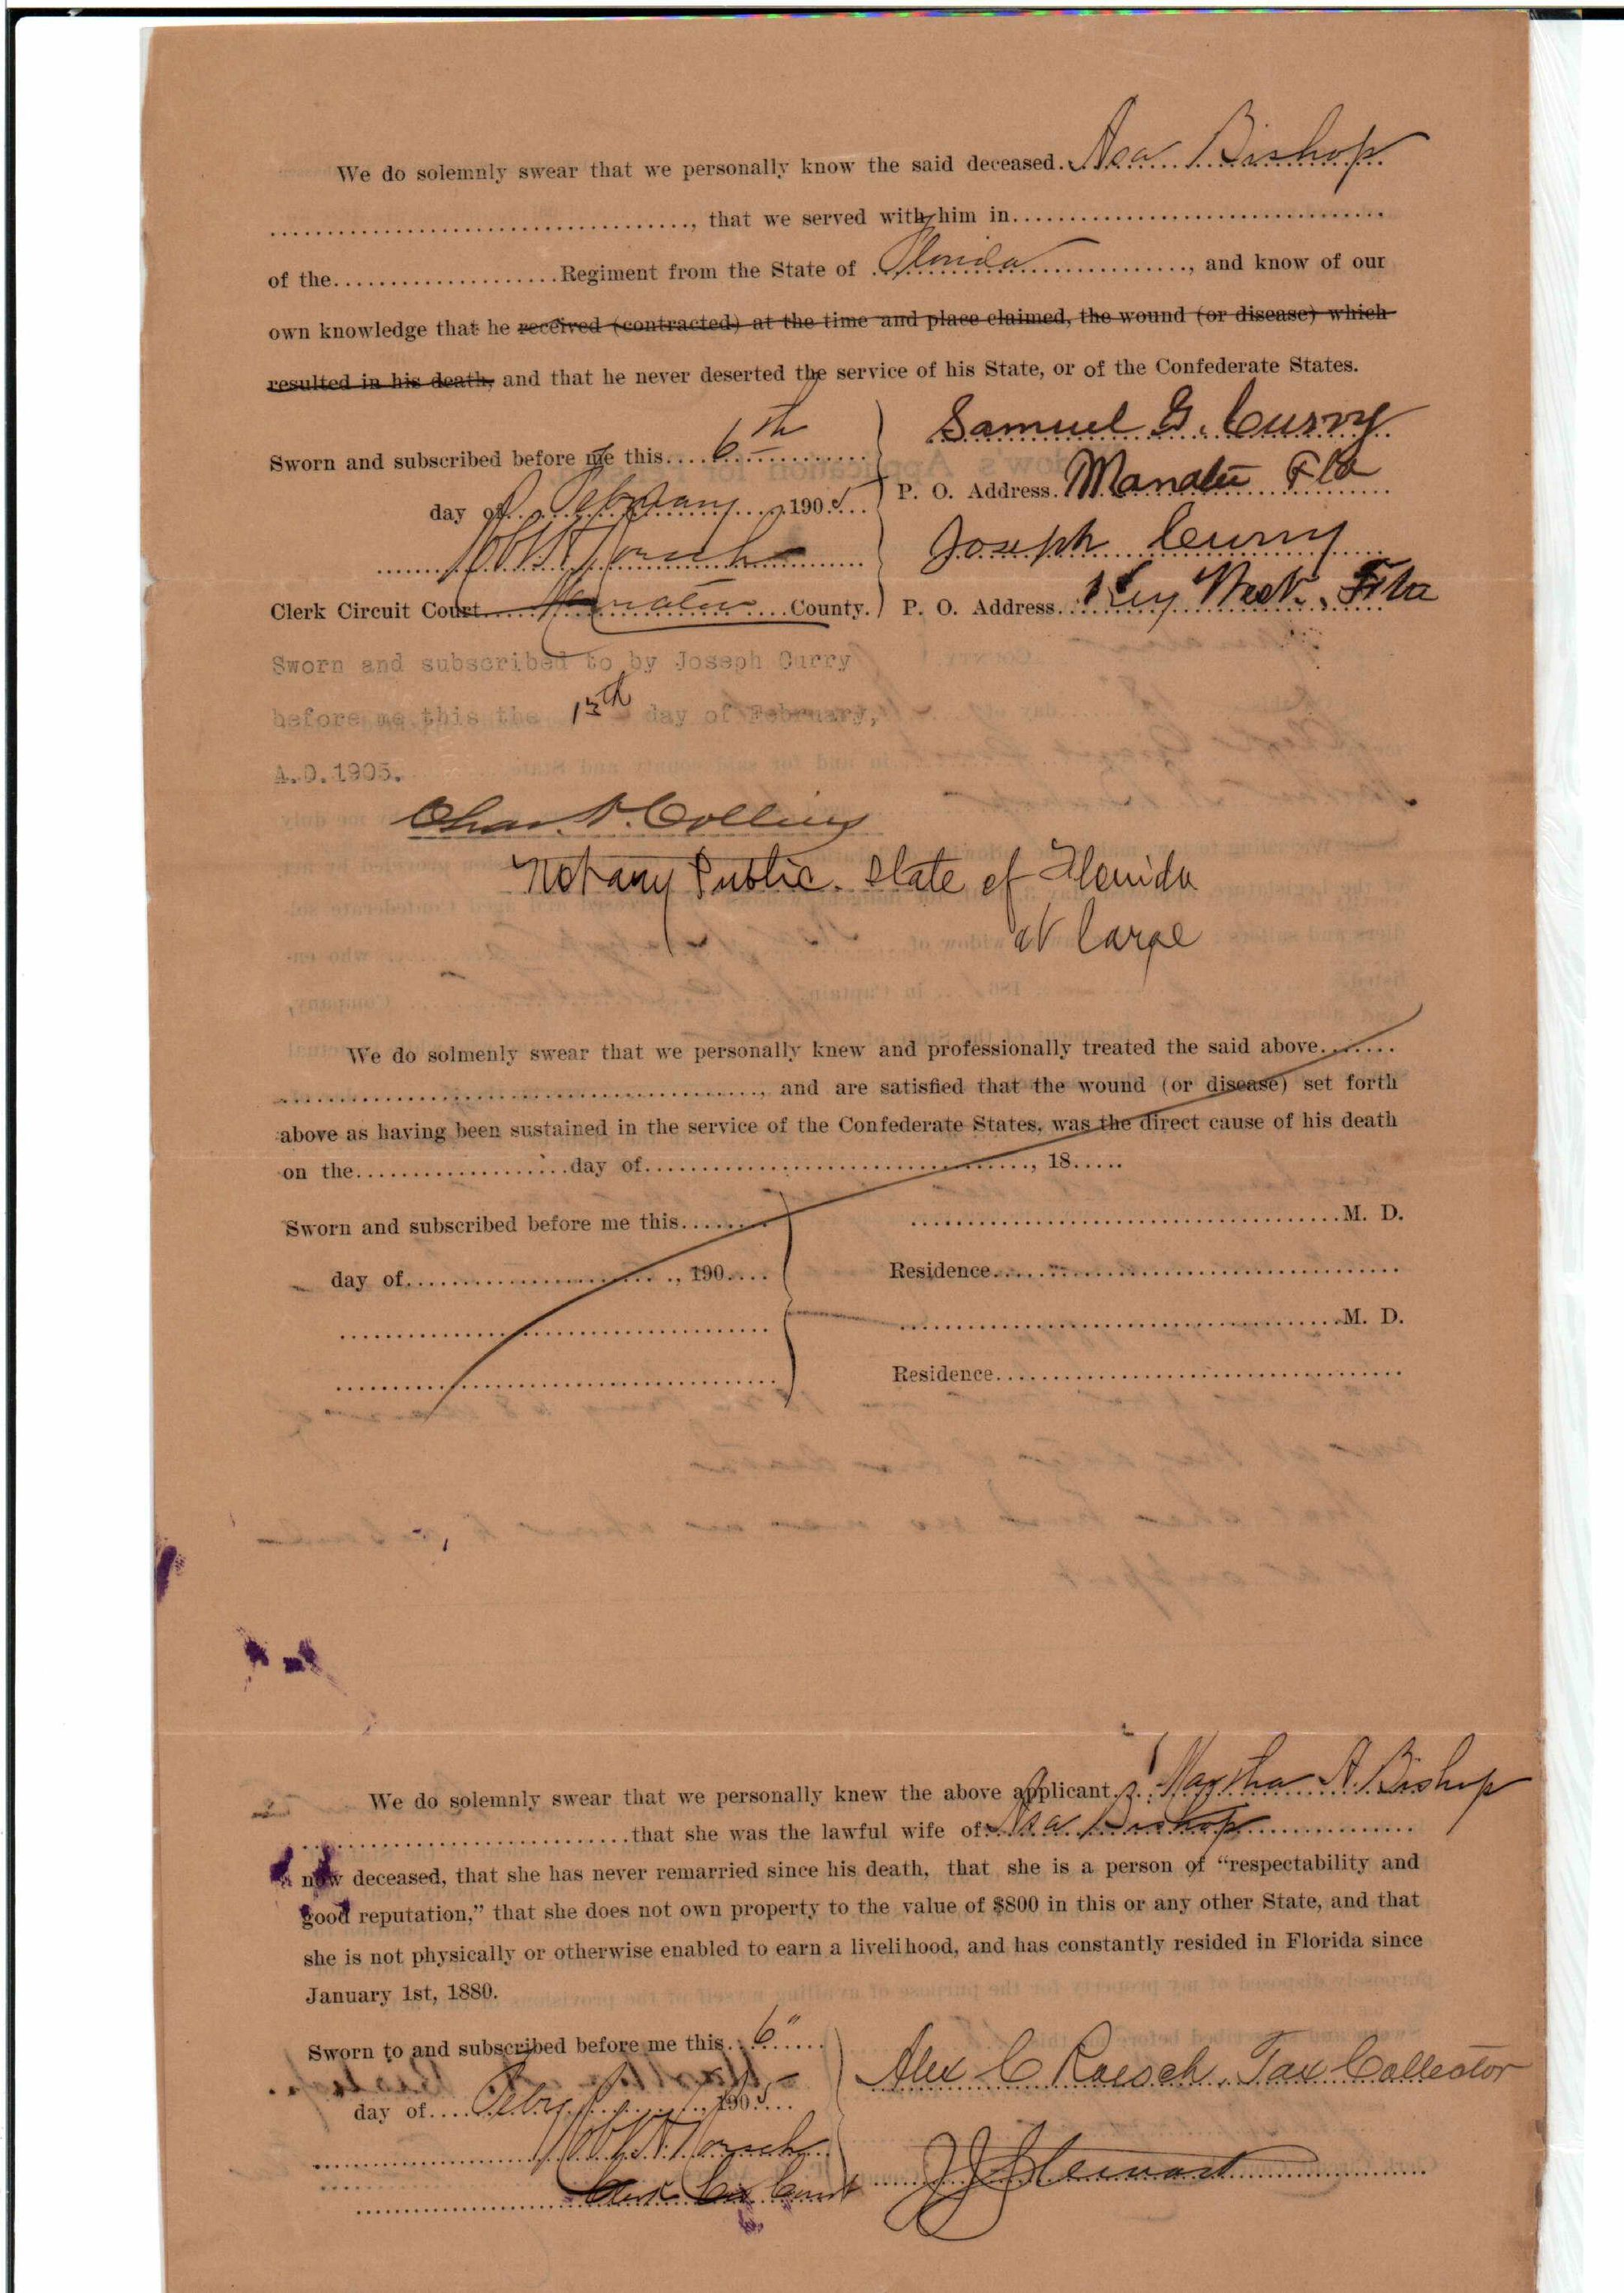 We do solemnly swear that we personally know the said deceased. Asa Bishop
......................................, that we served with him in......................................
of the......................Regiment from the State of Florida............, and know of our
own knowledge that he received (contracted) at the time and place claimed, the wound (or disease) which
resulted in his death, and that he never deserted the service of his State, or of the Confederate States.
Samuel G. Curry
Sworn and subscribed before me this....6th............
P. O. Address. Manatee Fla
day of February 1905
Joseph Curry
Robt H Roesch
Clerk Circuit Court Manatee County.
P. O. Address. Key West, Fla
Sworn and subscribed to by Joseph Curry
before me this the 13th day of February,
A.D.1905.
Chas. Collins
Notary Public. State of Florida
at large
We do solmenly swear that we personally knew and professionally treated the said above.......
......................................, and are satisfied that the wound (or disease) set forth
above as having been sustained in the service of the Confederate States, was the direct cause of his death
on the....................day of......................................, 18.....
Sworn and subscribed before me this........
......................................M. D.
day of........................., 190....
Residence......................................
......................................M. D.
Residence......................................
We do solemnly swear that we personally knew the above applicant, Martha A. Bishop
..............................that she was the lawful wife of Asa Bishop..............
now deceased, that she has never remarried since his death, that she is a person of “respectability and
good reputation,” that she does not own property to the value of $800 in this or any other State, and that
she is not physically or otherwise enabled to earn a livelihood, and has constantly resided in Florida since
January 1st, 1880.
Sworn to and subscribed before me this..6"......
Alex C Roesch, Tax Collector
day of....Feby 1905...
Robt H Roesch
J J Stewart
Clerk Cir Court